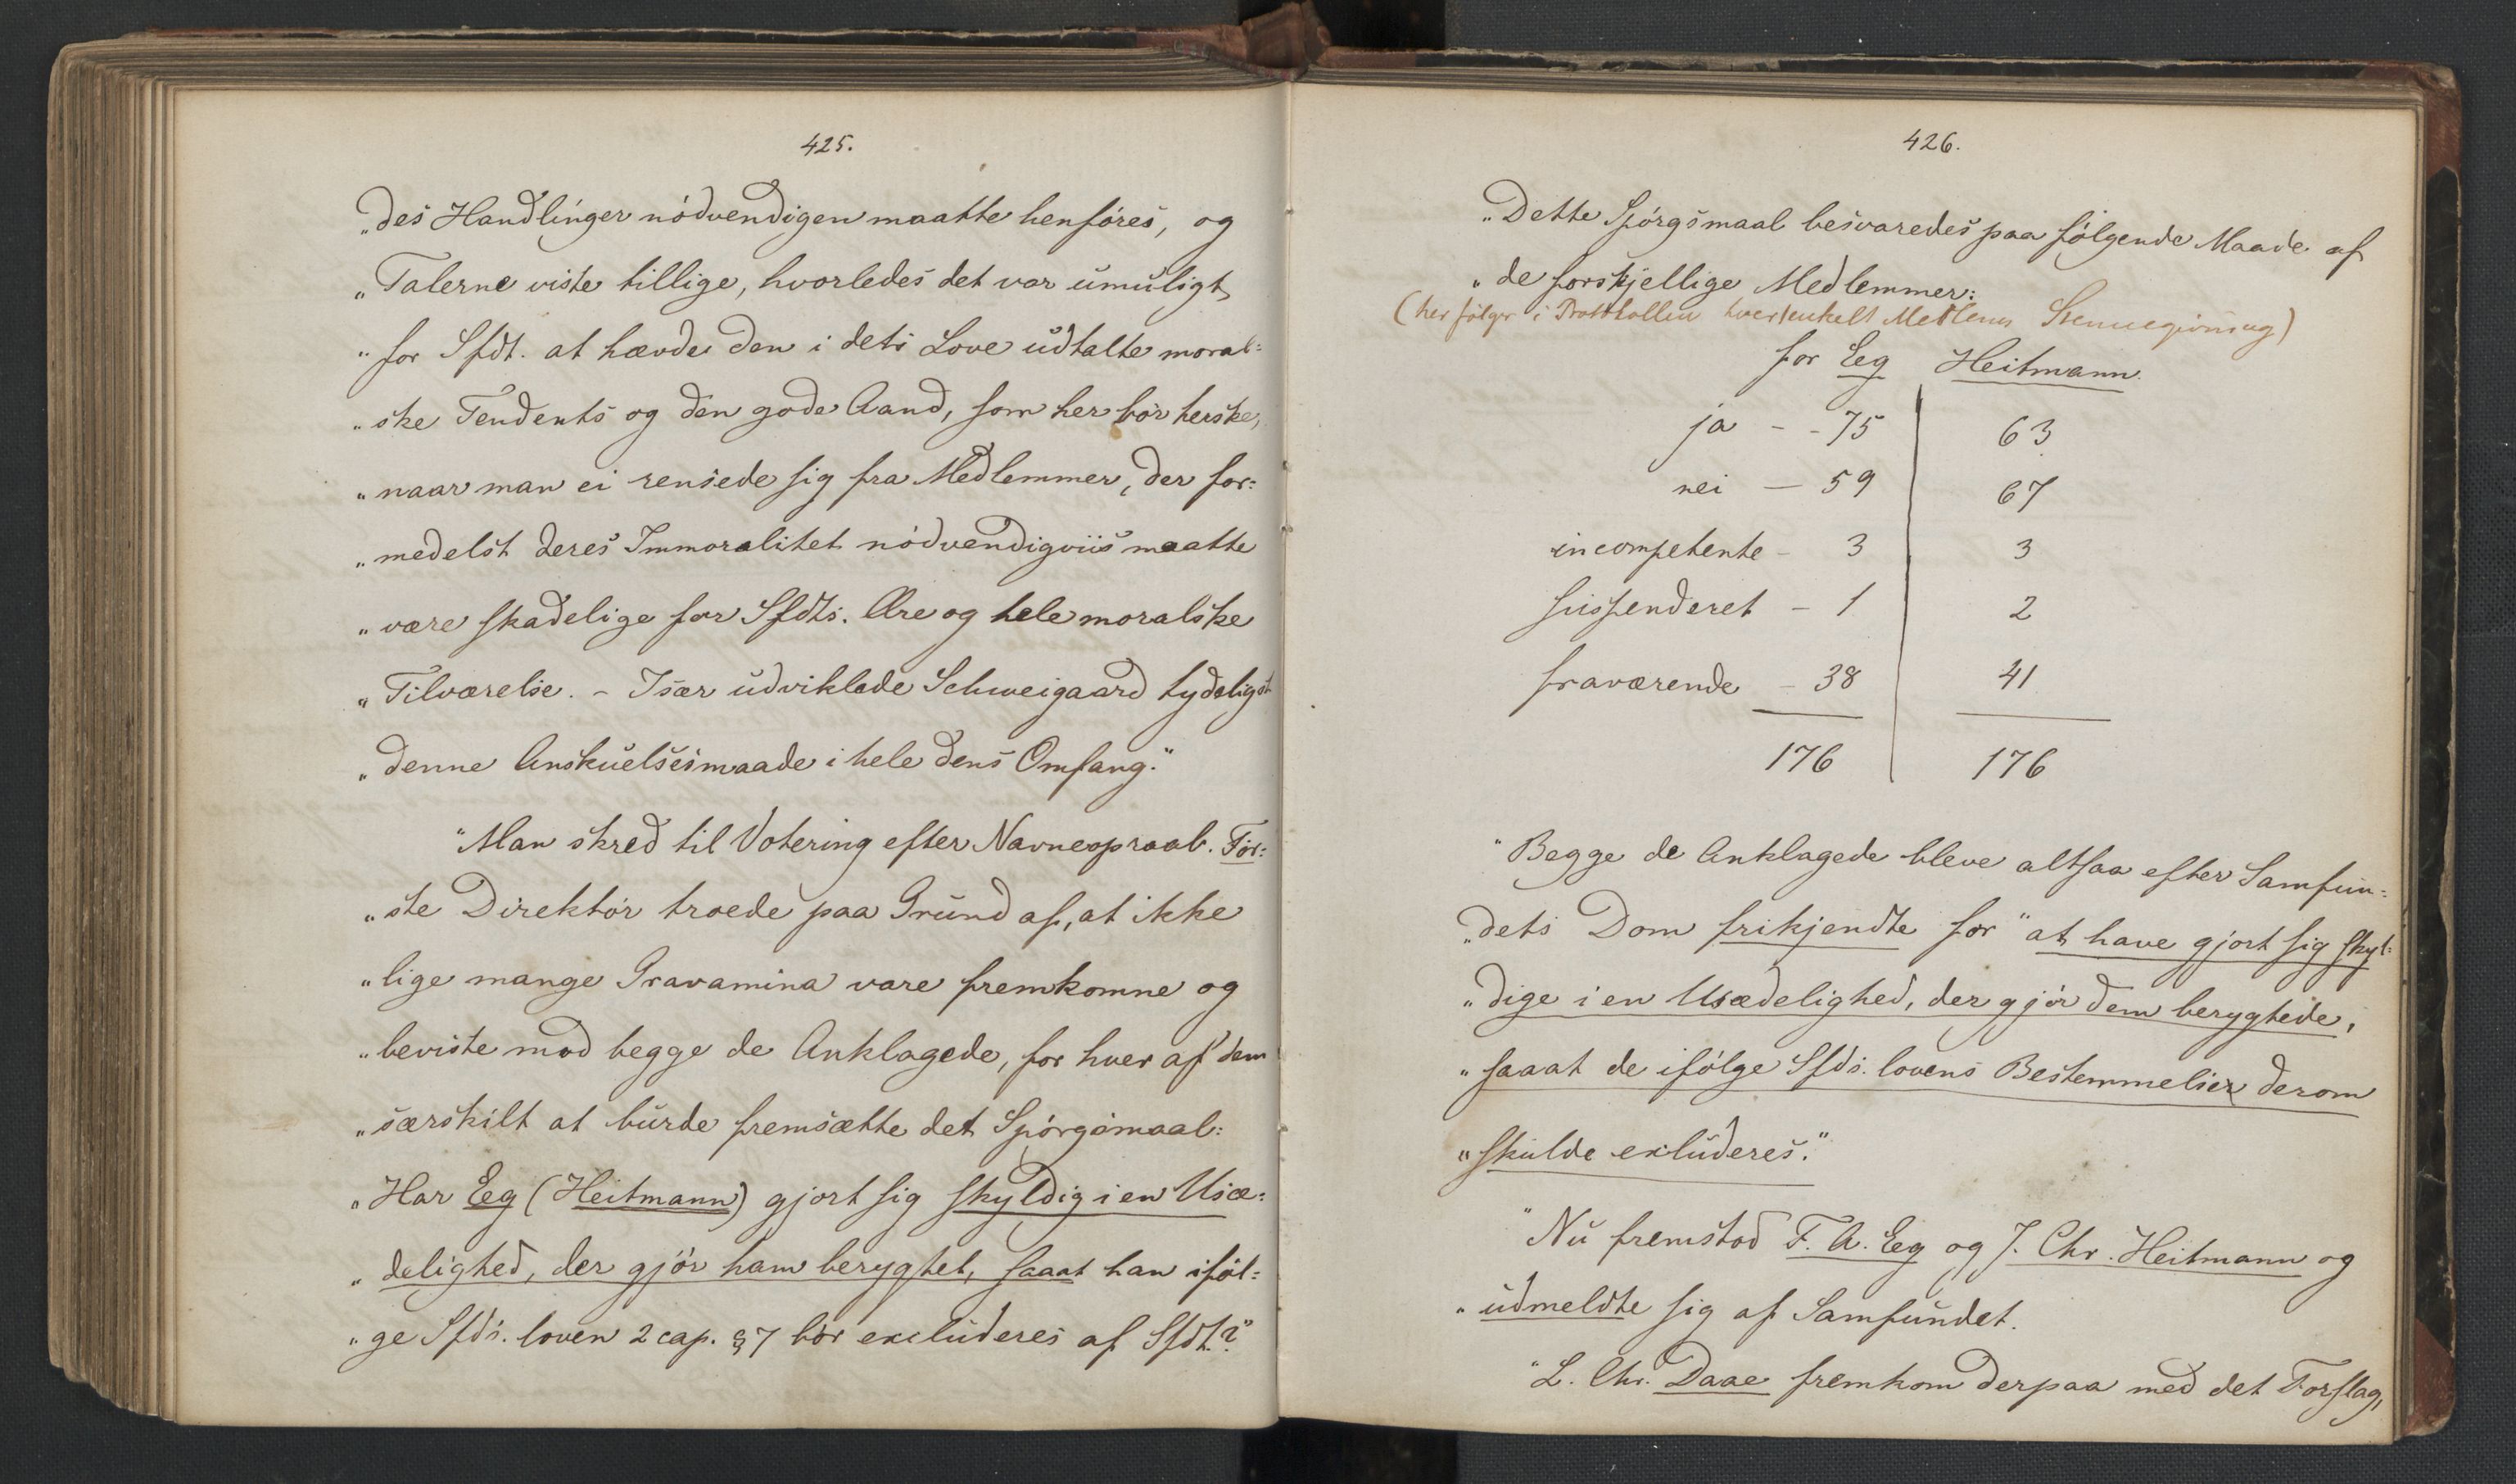 425.
„des Handlinger nödvendigen maatte henföres, og
„Talerne viste tillige, hvorledes det var umuligt
„for Sfdt. at hævde den i dets Love udtalte moral=
„ske Tendents og den gode Aand, som her bör herske,
„naar man ei rensede sig fra Medlemmer, der for=
„medelst deres Immoralitet nödvendigviis maatte
„være skadelige for Sfdts. Ære og hele moralske
„Tilværelse. – Især udviklede Schweigaard tydeligst
„denne Anskuelsesmaade i hele dens Omfang."
"Man skred til Votering efter Navneopraab. För=
„ste Direktör troede paa Grund af, at ikke
„lige mange Gravamina vare fremkomne og
„beviste mod begge de Anklagede, for hver af dem
„særskilt at burde fremsætte det Spörgsmaal:
„Har Eeg (Heitmann) gjort sig skyldig i en Usæ=
„delighed, der gjör ham berygtet, saaat han iföl=
„ge Sfds. loven 2 cap. §7 bör excluderes af Sfdt.?"
426.
„Dette Spörgsmaal besvaredes paa fölgende Maade af
„de forskjellige Medlemmer:
(her fölger i Protokollen hvert enkelt Medlems Stemmegivning)
for Eeg Heitmann.
ja - - 75 63
nei — 59 67
incompetente - 3 3
suspenderet - 1 2
fraværende - 38 41
176 176
"Begge de Anklagede bleve altsaa efter Samfun=
„dets Dom frikjendte for "at have gjort sig skyl=
„dige i en Usædelighed, der gjör dem berygtede,
„saaat de ifölge Sfds. lovens Bestemmelser derom
„skulde exluderes."
"Nu fremstod F. A. Eeg og J. Chr. Heitmann og
„udmeldte sig af Samfundet.
"L. Chr. Daae fremkom derpaa med det Forslag,